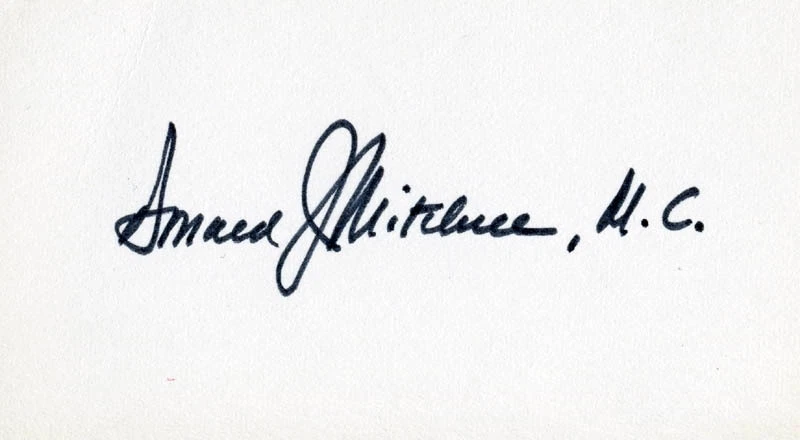 Donald J. Mitchell, M.C.